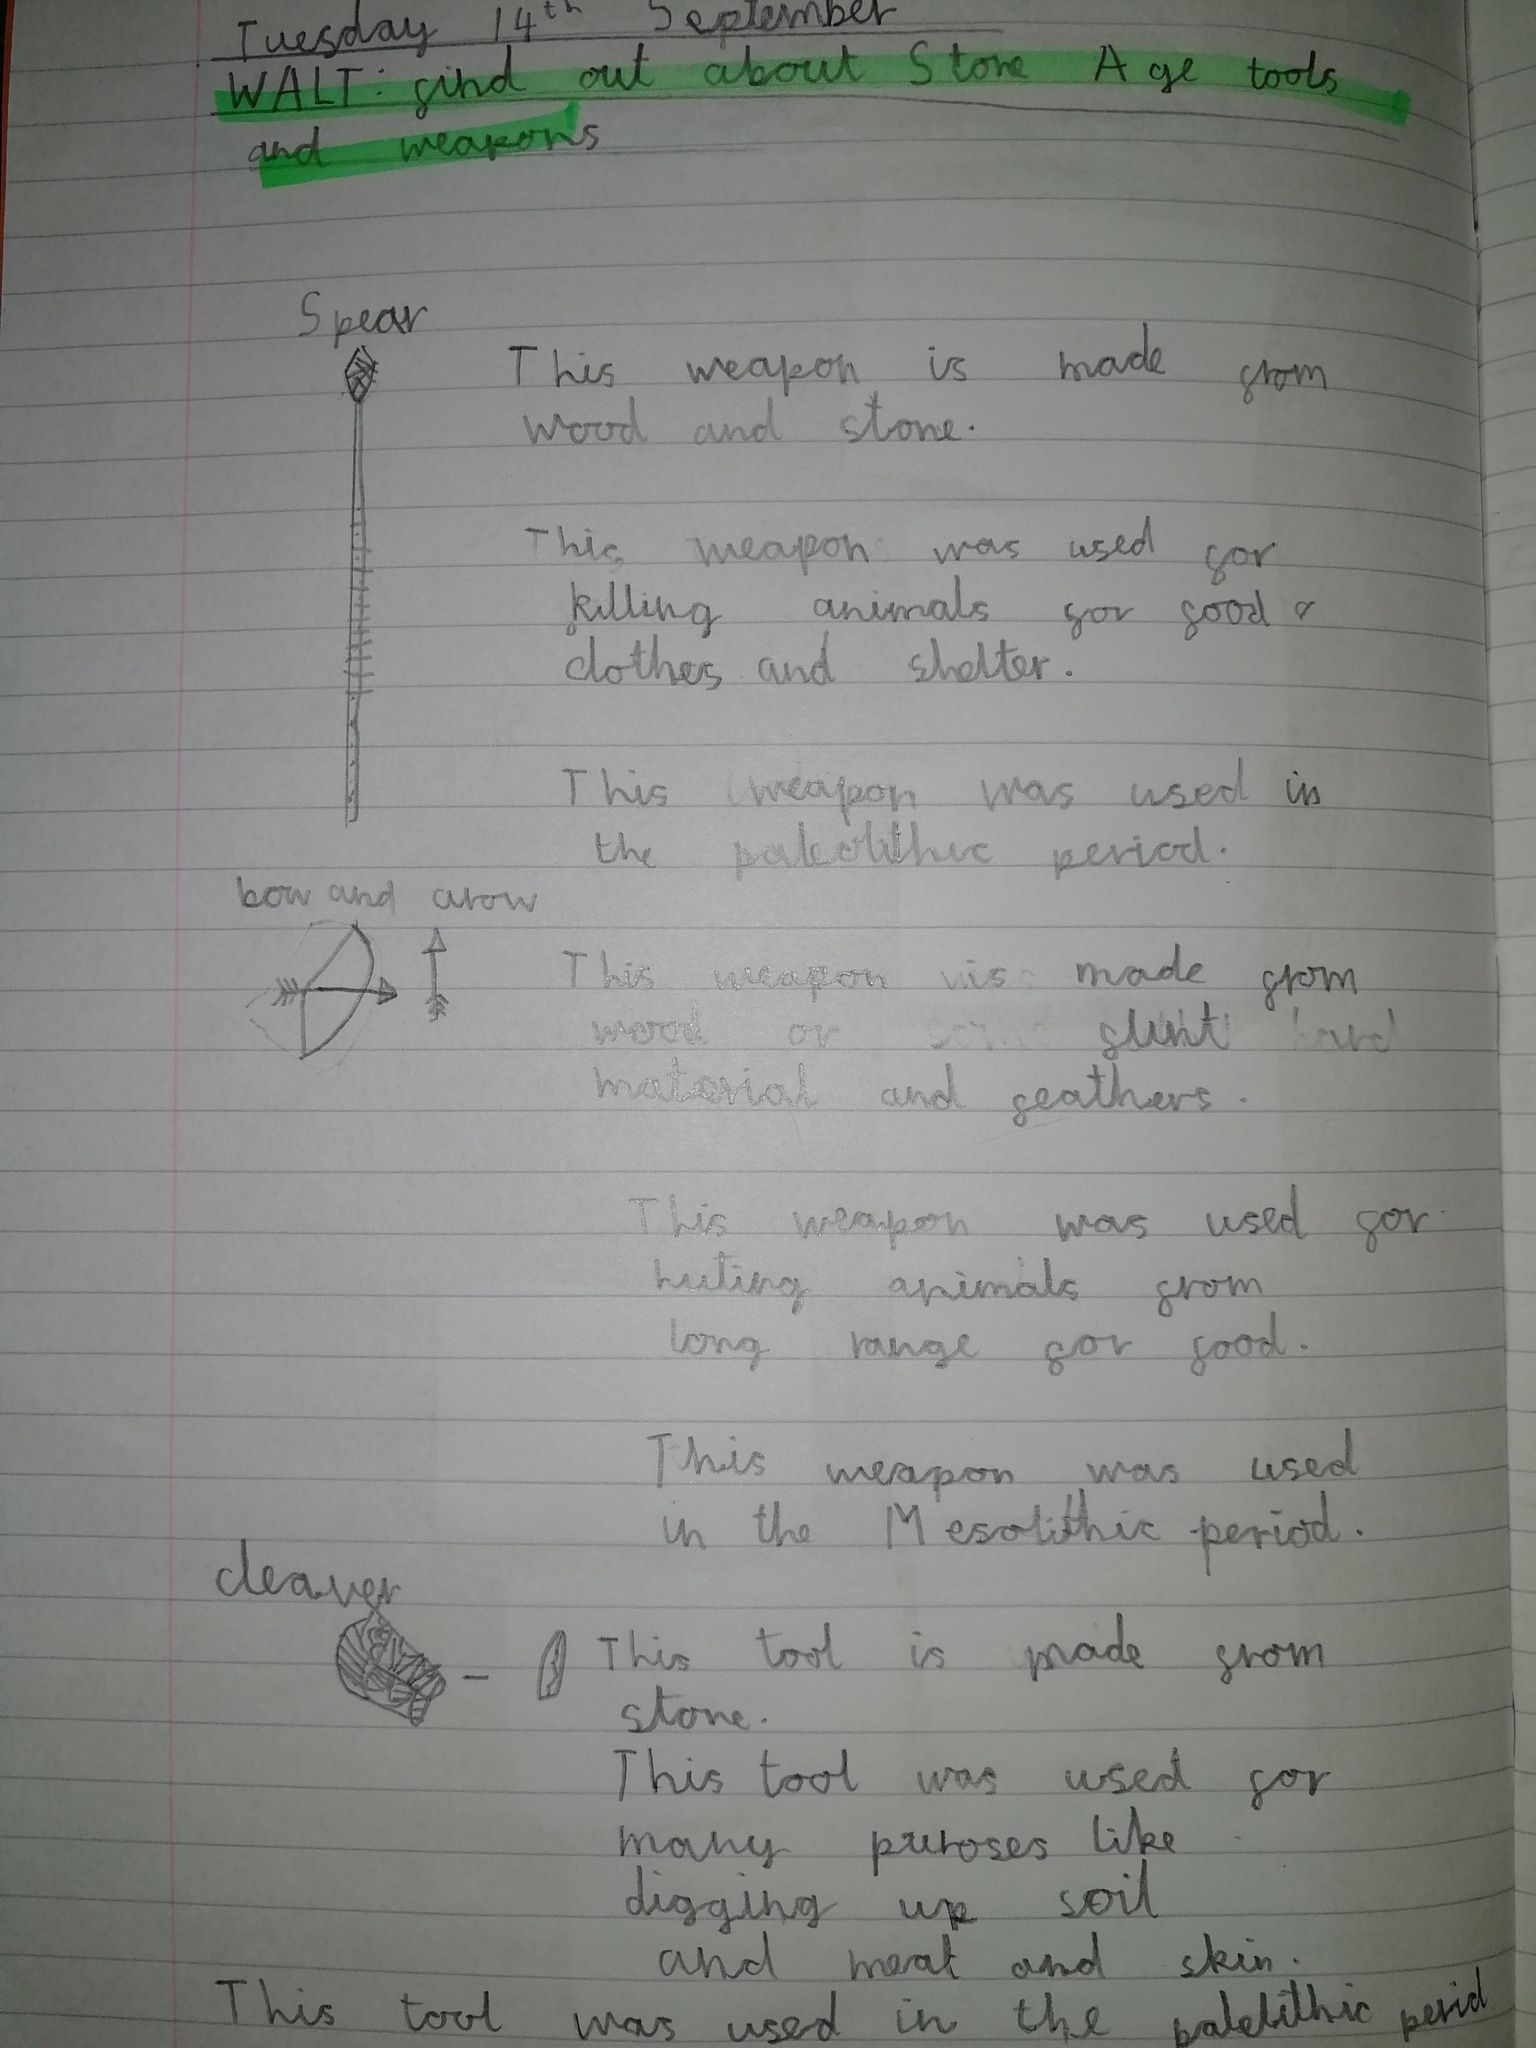 Tuesday 14th September
WALT: find out about Stone Age tools
and weapons
Spear
This weapon is made from
wood and stone.
This weapon was used for
killing animals for food &
clothes and shelter.
This weapon was used in
the paleolithic period.
bow and arow
This weapon is made from
wood or flint hard
material and feathers.
This weapon was used for
huting animals from
long range for food.
This weapon was used
in the Mesolithic period.
cleaver
This tool is made from
stone.
This tool was used for
many puroses like
digging up soil
and meat and skin.
This tool was used in the palelithic period